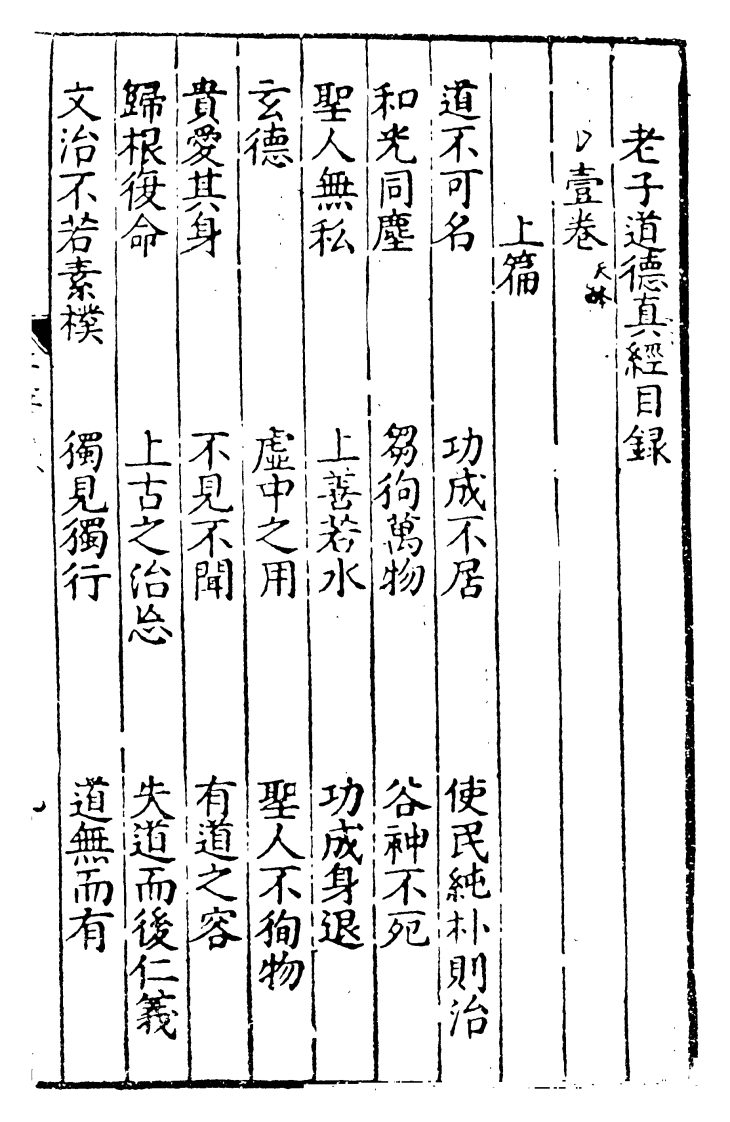 老子道德真經目録
壹卷
上篇
道不可名 功成不居 使民純朴則治
和光同塵 芻狥萬物 谷神不死
聖人無私 上善若水 功成身退
玄德 虛中之用 聖人不狥物
貴愛其身 不見不聞 有道之容
歸根復命 上古之治忘 失道而後仁義
文治不若素樸 獨見獨行 道無而有